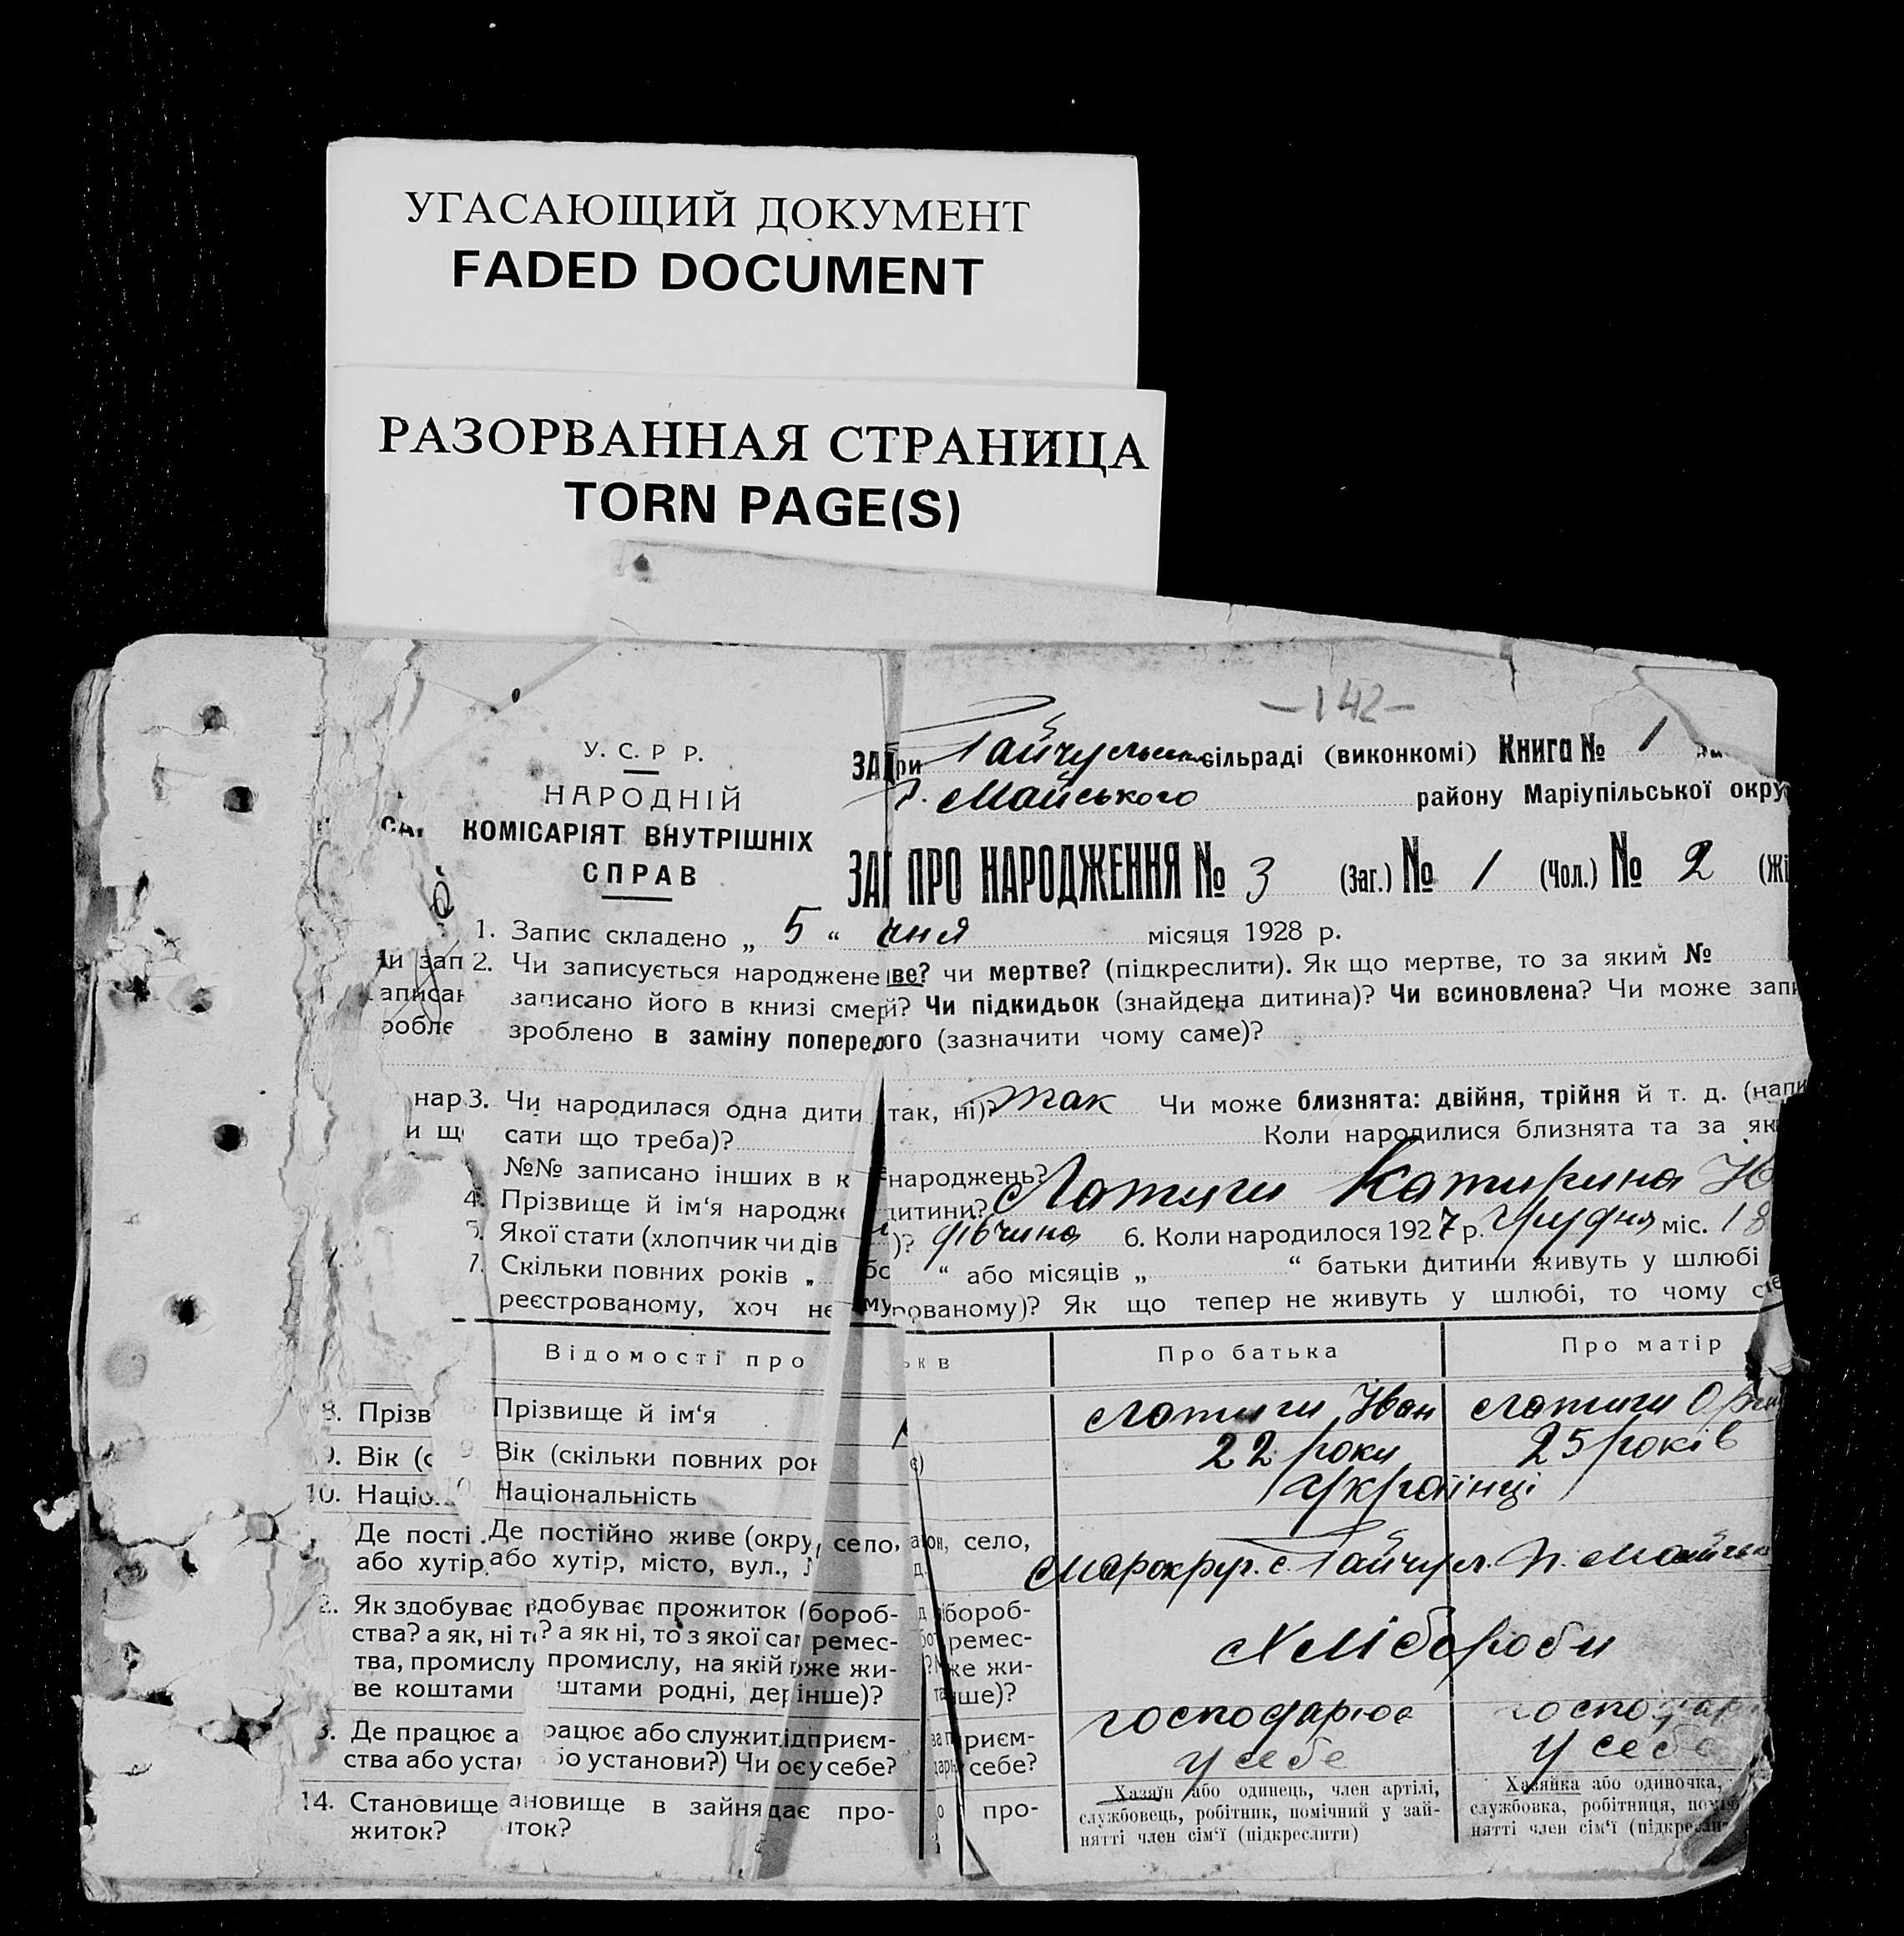 УГАСАЮЩИЙ ДОКУМЕНТ
FADED DOCUMENT
РАЗОРВАННАЯ СТРАНИЦА
TORN PAGE(S)
–142–
У. С. Р Р.
НАРОДНІЙ
КОМІСАРІЯТ ВНУТРІШНІХ
СПРАВ
ЗА ри сільраді (виконкомі) Книга № 1
Р. Майського району Маріупільської окру
ЗАП ПРО НАРОДЖЕННЯ № 3 (Заг.) № 1 (Чол.) № 2 (Жі
1. Запис складено „ 5 “ чня місяця 1928 р.
чи зап 2. Чи записується народжене ве? чи мертве? (підкреслити). Як що мертве, то за яким №
аписан записано його в книзі смер й? Чи підкидьок (знайдена дитина)? Чи всиновлена? Чи може запи
робле зроблено в заміну поперед ого (зазначити чому саме)?
нар 3. Чи народилася одна дити так, ні)? так Чи може близнята: двійня, трійня й т. д. (напи
и що сати що треба)? Коли народилися близнята та за як
№№ записано інших в к народжень?
4. Прізвище й ім‘я народже дитини? Катирина
5. Якої стати (хлопчик чи дів )? дівчина 6. Коли народилося 1927 р. грудня міс. 18
7. Скільки повних років „ бо “ або місяців „ “ батьки дитини живуть у шлюбі
реєстрованому, хоч не му рованому)? Як що тепер не живуть у шлюбі, то чому
Відомості про ьк в Про батька Про матір
8. Прізв Прізвище й ім‘я Іван
9. Вік (с 9. Вік (скільки повних рок є) 22 роки 25 років
10. Націо 0. Національність українці
Де пості Де постійно живе (окру село, он, село,
або хутір, або хутір, місто, вул., Д.
Маrokруг. с. Гайчул. Р. Майськ
2. Як здобуває здобуває прожиток (бороб- бороб-
ства? а як, ні т ? а як ні, то з якої са ремес- ремес-
тва, промислу промислу, на якій же жи- же жи-
ве коштами штами родні, де інше)? нше)?
Хлібороби
3. Де працює а рацює або служит ідприєм- приєм-
ства або уста бо установи?) Чи оє у себе? себе?
господарює господар
у себе у себе
14. Становище ановище в зайня дає про- про-
житок? иток?
Хазяїн або одинець, член артілі,
службовець, робітник, помічний у зай-
нятті член сім‘ї (підкреслити)
Хазяйка або одиночка,
службовка, робітниця, поміч
нятті член сім‘ї (підкресли